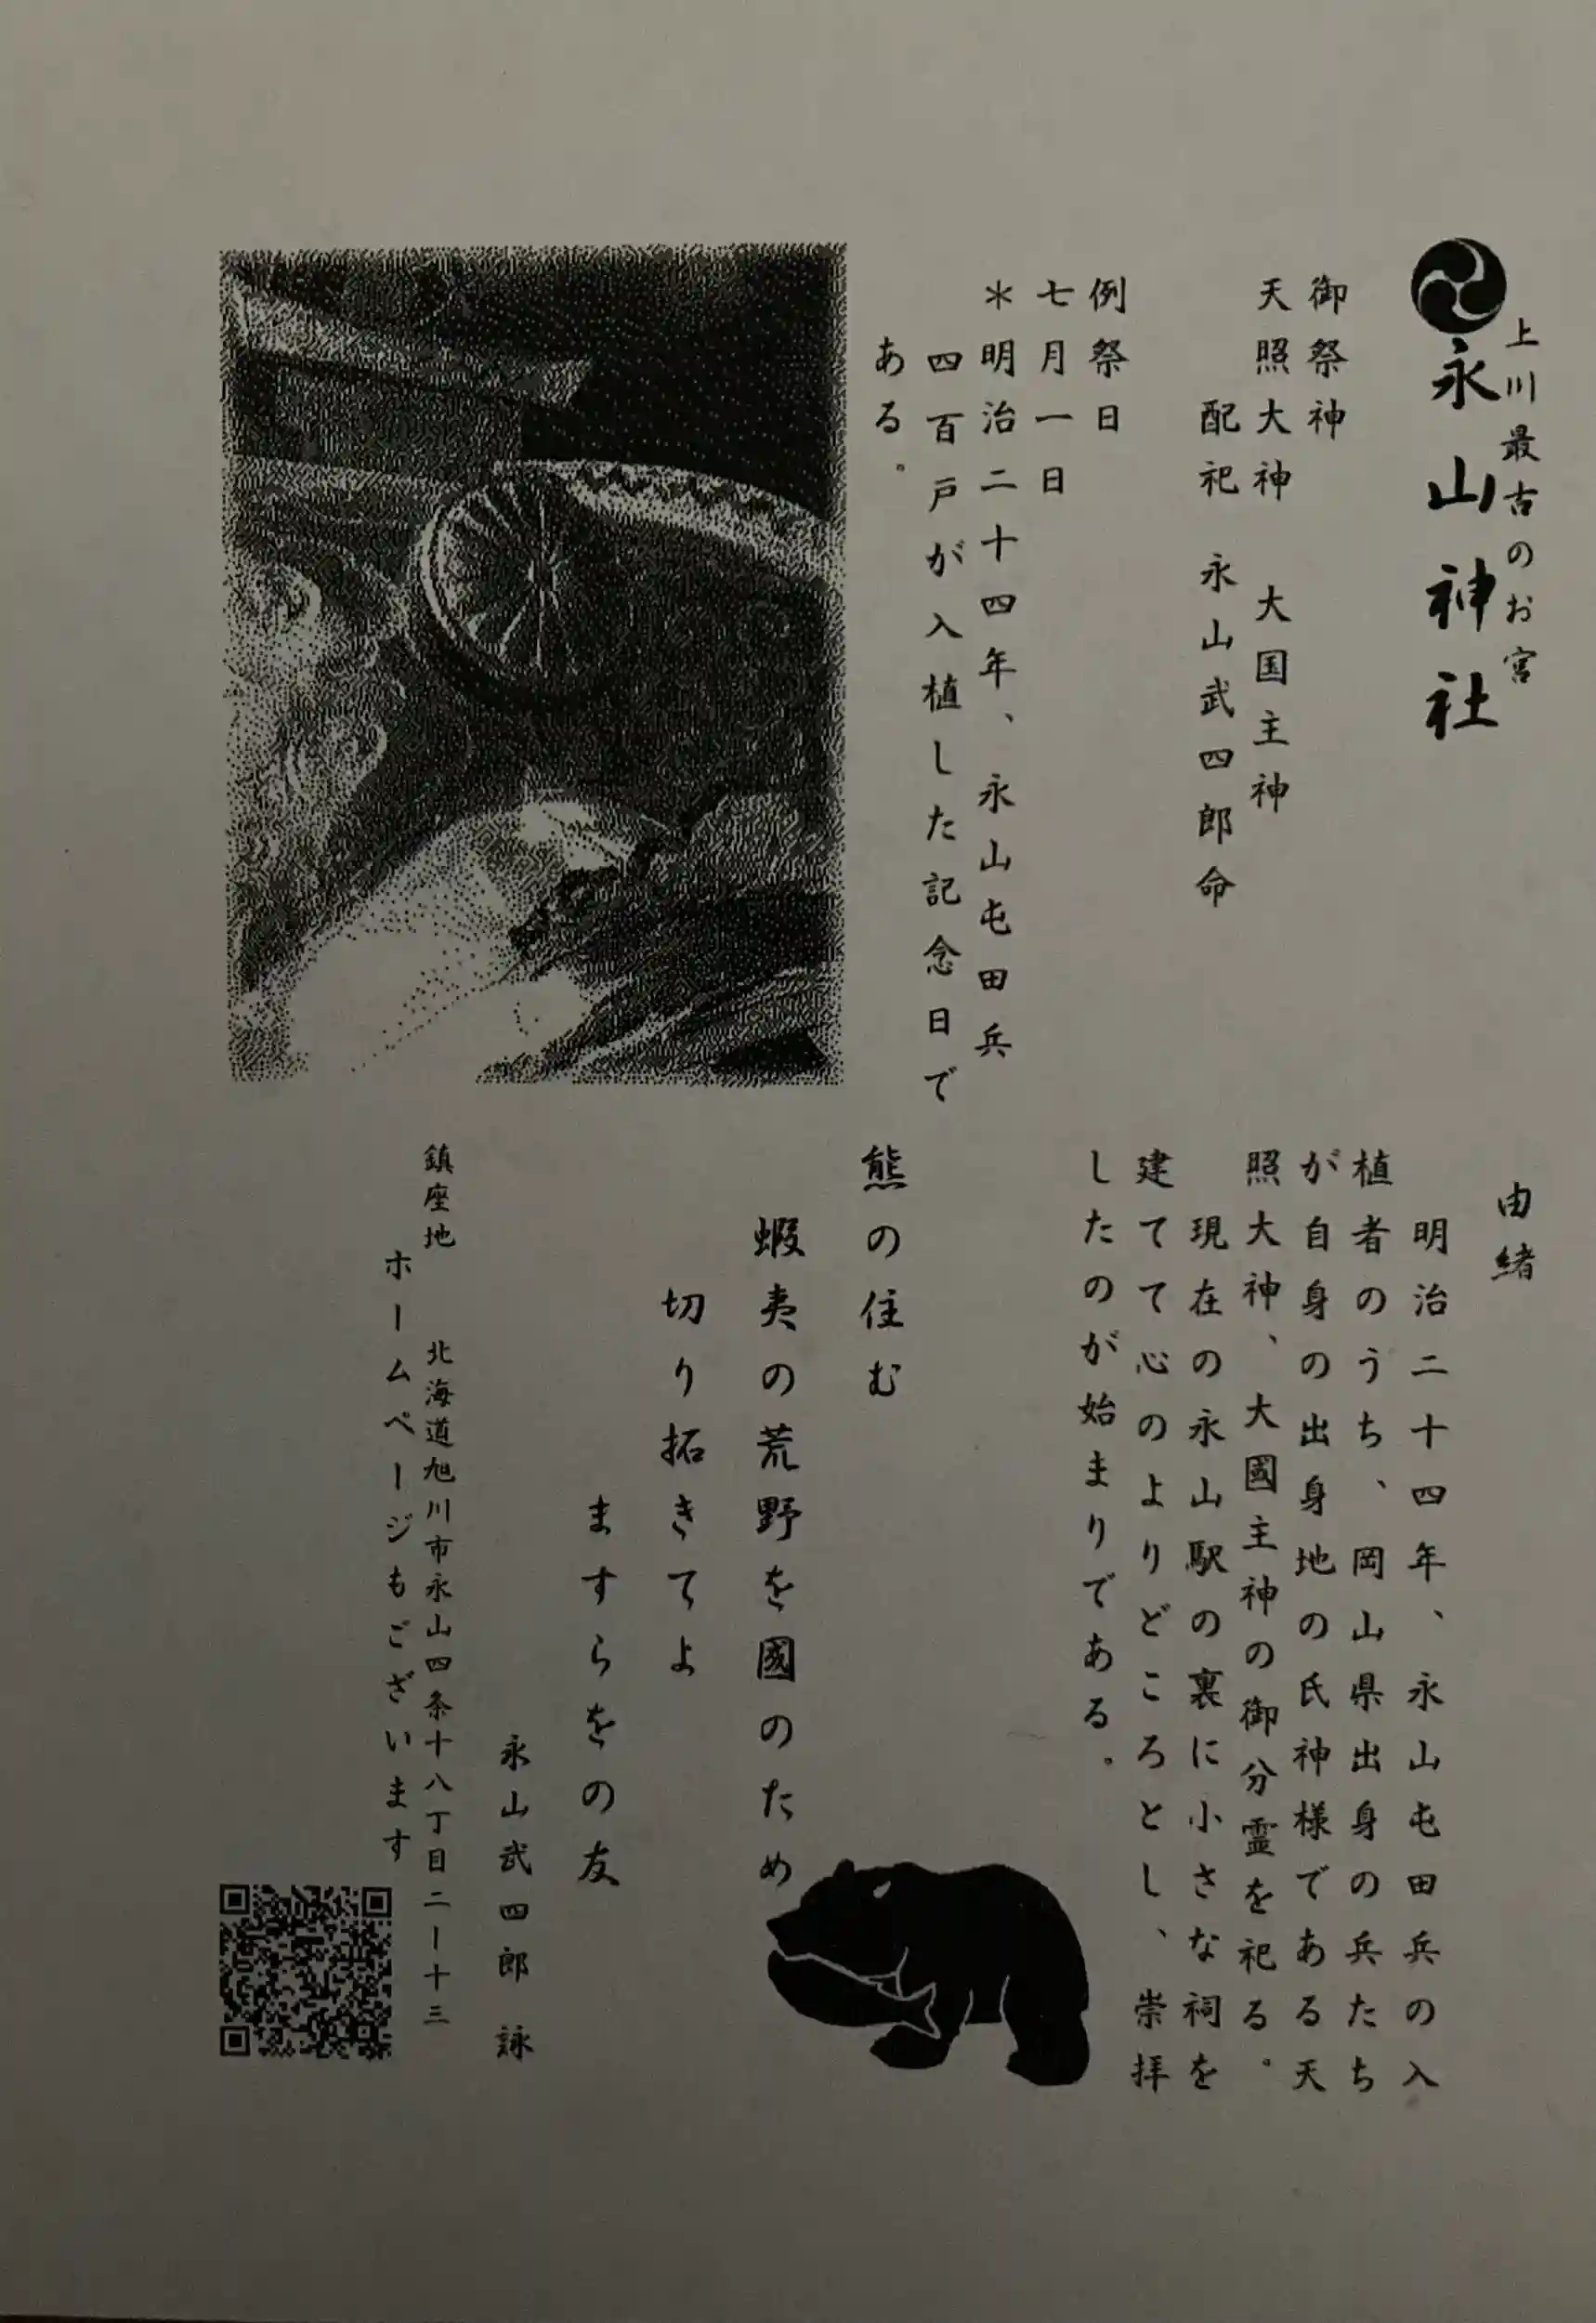 上川最古のお宮
永山神社
御祭神
天照大神　大国主神
配祀　永山武四郎命
例祭日
七月一日
＊明治二十四年、永山屯田兵
四百戸が入植した記念日で
ある。
由緒
明治二十四年、永山屯田兵の入
植者のうち、岡山県出身の兵たち
が自身の出身地の氏神様である天
照大神、大國主神の御分霊を祀る。
現在の永山駅の裏に小さな祠を
建てて心のよりどころとし、崇拝
したのが始まりである。
熊の住む
蝦夷の荒野を國のため
切り拓きてよ
ますらをの友
永山武四郎　詠
鎮座地　北海道旭川市永山四条十八丁目二ー十三
ホームページもございます